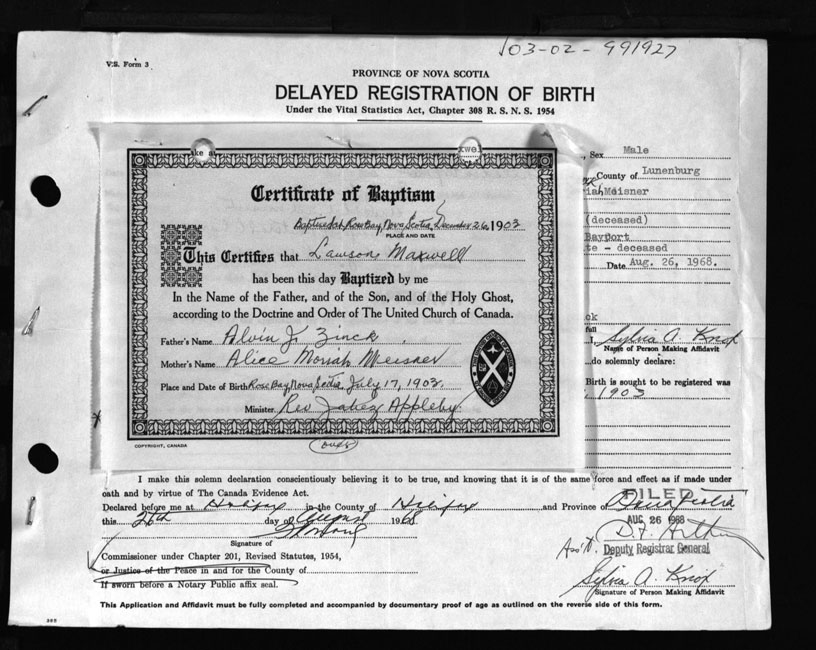 103-02-991927
V.S. Form 3
PROVINCE OF NOVA SCOTIA
DELAYED REGISTRATION OF BIRTH
Under the Vital Statistics Act, Chapter 308 R. S. N. S. 1954
ke a
xwel
, Sex Male
County of Lunenburg
iah Meisner
(deceased)
Bayport
te - deceased
Date Aug. 26, 1968.
ck
I, Sylvia A. Knox
Name of Person Making Affidavit
do solemnly declare:
Birth is sought to be registered was
, 1903
Certificate of Baptism
Rose Bay, Nova Scotia, December 26, 1903
PLACE AND DATE
This Certifies that Lawson Maxwell
has been this day Baptized by me
In the Name of the Father, and of the Son, and of the Holy Ghost,
according to the Doctrine and Order of The United Church of Canada.
Father's Name Alvin J. Zinck
Mother's Name Alice Moriah Meisner
Place and Date of Birth Rose Bay, Nova Scotia July 17, 1903.
Minister. Rev Jabez Appleby
COPYRIGHT, CANADA
(over)
I make this solemn declaration conscientiously believing it to be true, and knowing that it is of the same force and effect as if made under
oath and by virtue of The Canada Evidence Act.
Declared before me at Halifax in the County of Halifax and Province of Nova Scotia
this 26th day of August 1968
FILED
AUG 26 1968
Signature of
Commissioner under Chapter 201, Revised Statutes, 1954,
or Justice of the Peace in and for the County of
If sworn before a Notary Public affix seal.
Ass't. Deputy Registrar General
Sylvia A. Knox
Signature of Person Making Affidavit
This Application and Affidavit must be fully completed and accompanied by documentary proof of age as outlined on the reverse side of this form.